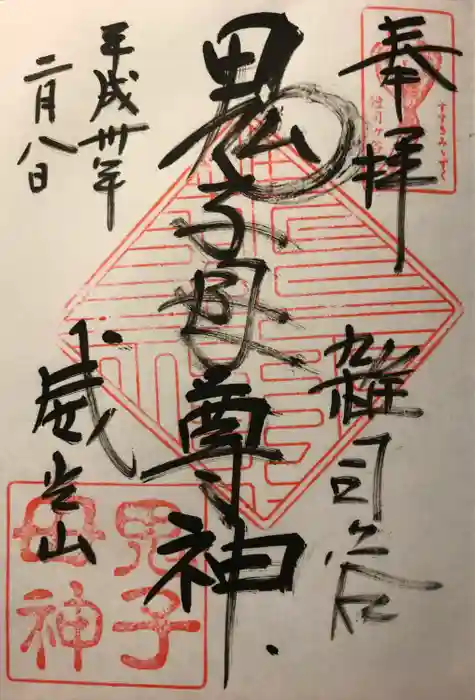 奉拝
雑司ヶ谷
鬼子母尊神
威光山
平成卅年
二月八日
すすきみみずく
雑司ヶ谷
鬼子
母神